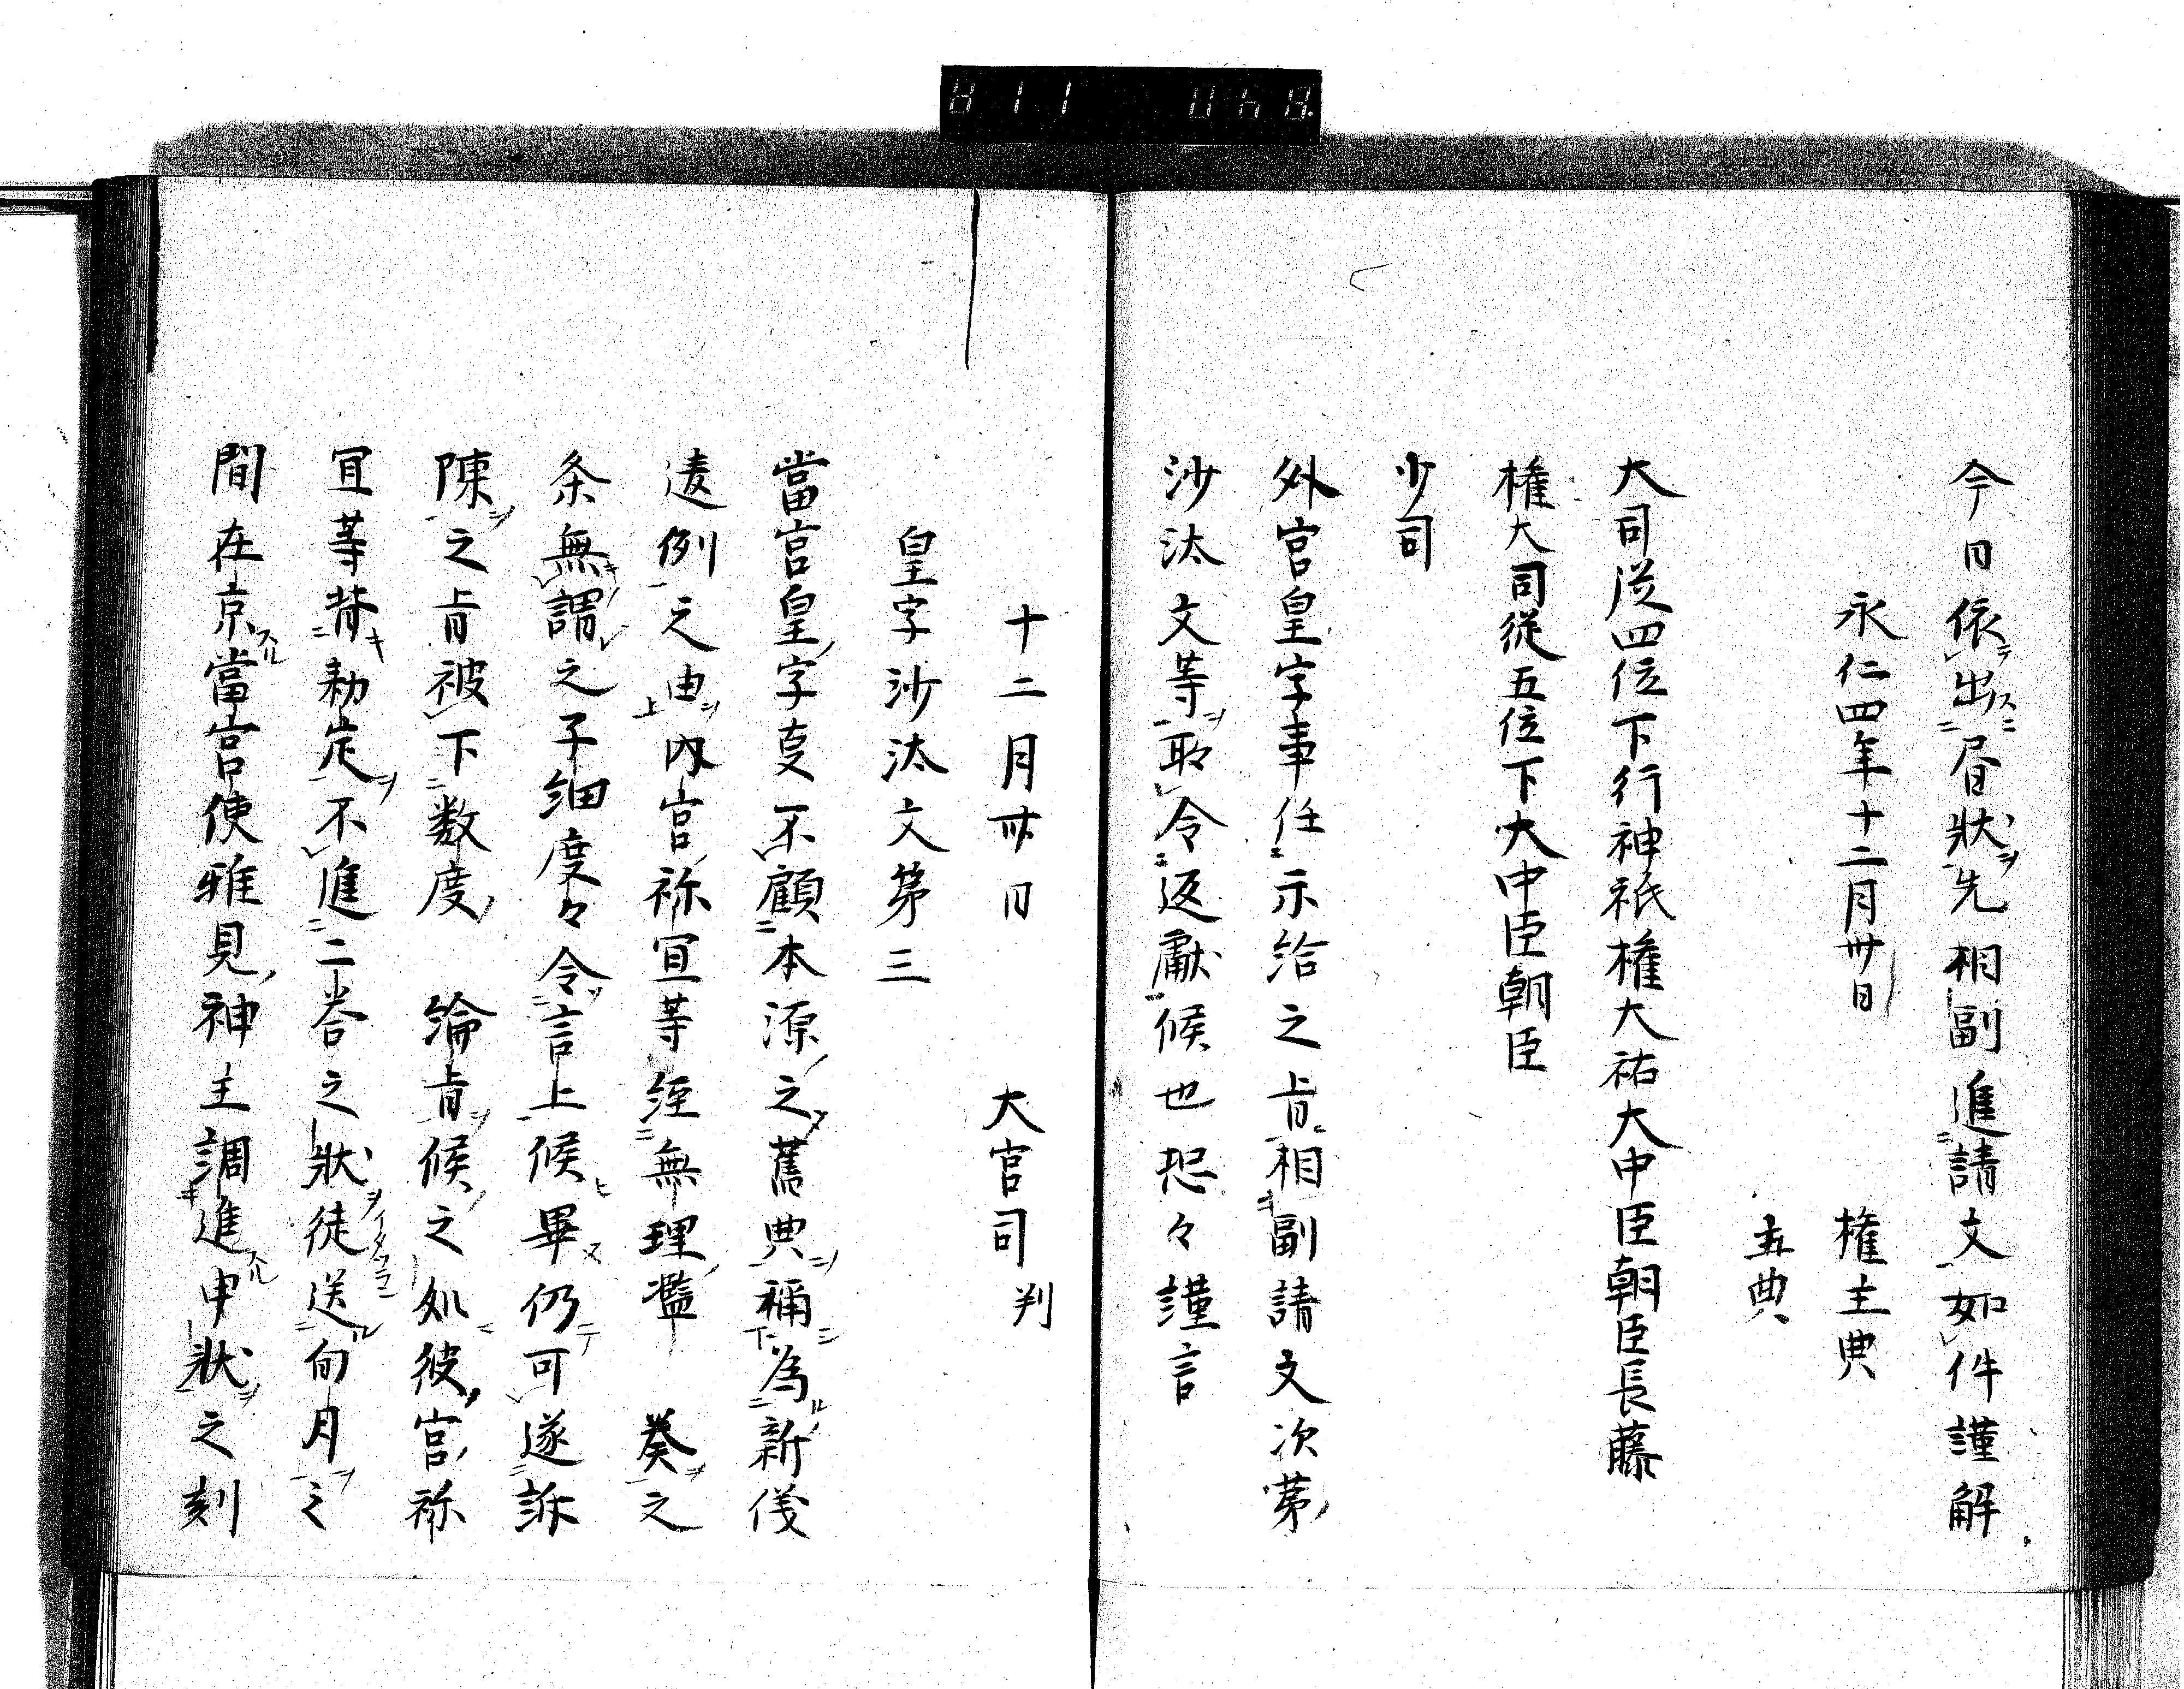 今日依出昬狀先相副進請文如件謹解
永仁四年十二月卅日 權主典
主典
大司従四位下行神祇權大祐大中臣朝臣長藤
權大司從五位下大中臣朝臣
少司
外宮皇字事任示給之旨相副請文次第
沙汰文等取令返獻候也恐々謹言
十二月卅日 大宮司判
皇字沙汰文第三
當宮皇字更不顧本源之舊典稱為新儀
違例之由內宮祢宜等經無理濫 奏之
条無謂之子細度々令言上候畢仍可遂訴
陳之旨被下数度 綸旨候之処彼宮祢
宜等背勅定不進二答之狀徒送旬月之
間在京當宮使雅見神主調進申狀之刻